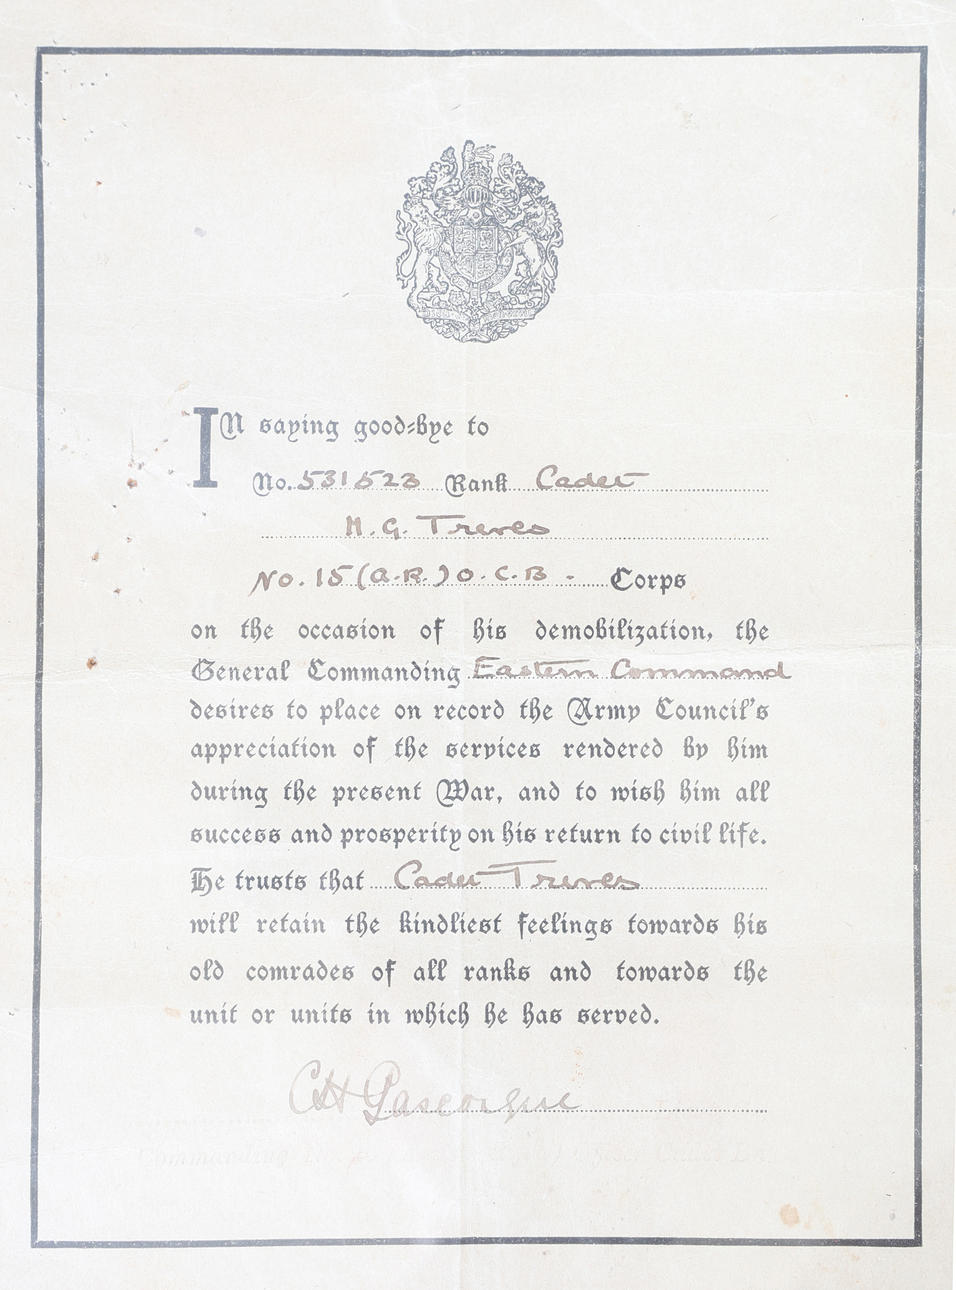 In saying good-bye to
No. 531523 Rank Cadet
H. G. Treves
No. 15 (A.R.) O.C.B. Corps
on the occasion of his demobilization, the
General Commanding Eastern Command
desires to place on record the Army Council's
appreciation of the services rendered by him
during the present War, and to wish him all
success and prosperity on his return to civil life.
He trusts that Cadet Treves
will retain the kindliest feelings towards his
old comrades of all ranks and towards the
unit or units in which he has served.
CH Gascoigne
Commanding